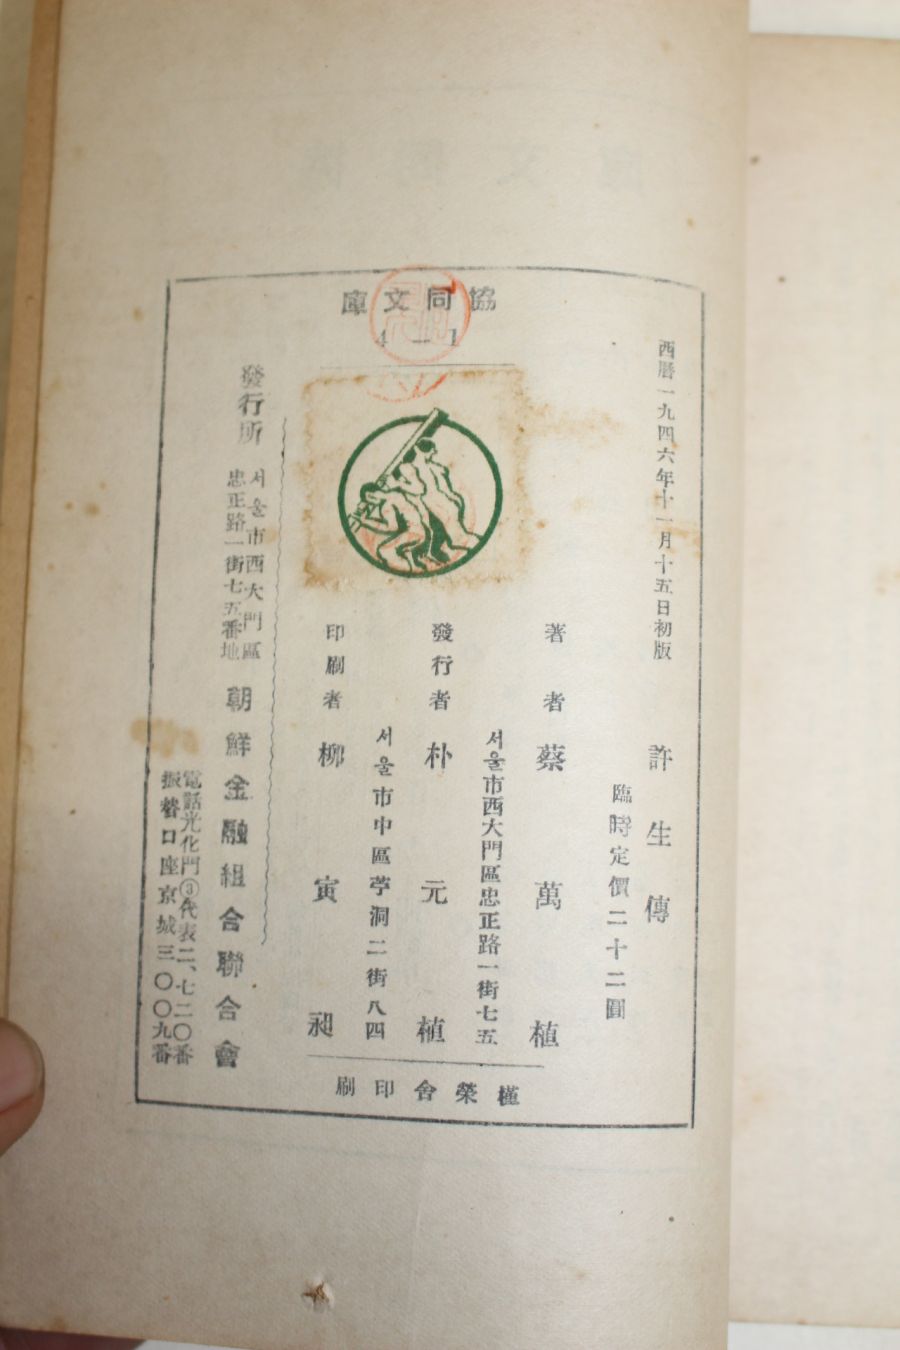 西曆一九四六年十一月十五日初版
許生傳
臨時定價二十二圓
協同文庫
4—1
著者 蔡萬植
서울市西大門區忠正路一街七五
發行者 朴元植
서울市中區苧洞二街八四
印刷者 柳寅昶
槿榮舍印刷
發行所 서울市西大門區
忠正路一街七五番地
朝鮮金融組合聯合會
電話光化門③代表二、七二〇番
振替口座京城三〇〇九番